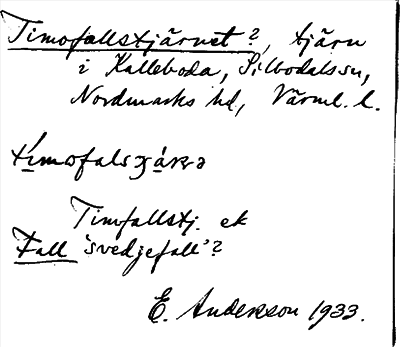 Timofallstjärnet?, tjärn
i Kalleboda, Silbodalssn,
Nordmarks hd, Värml. l.
Timfallstj. ek
Fall 'svedjefall'?
E. Anderson 1933.